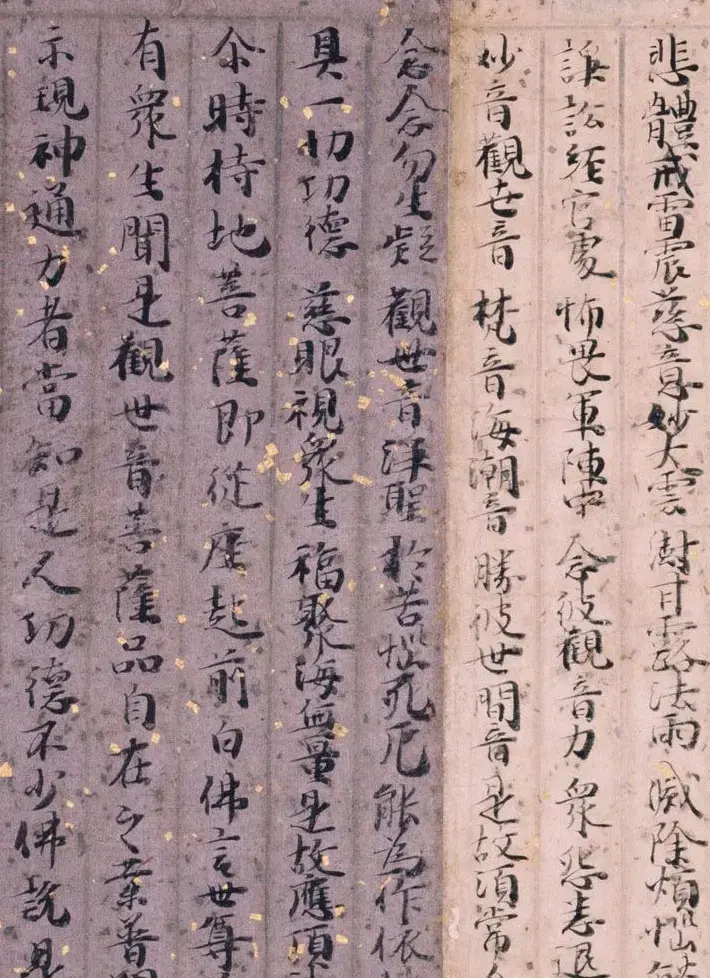 悲體戒雷震慈意妙大雲澍甘露法雨滅除煩惱
諍訟經官處怖畏軍陣中念彼觀音力眾怨悉退
妙音觀世音梵音海潮音勝彼世間音是故須常
念念勿生疑觀世音淨聖於苦惱死厄能為作依
具一切功德慈眼視眾生福聚海無量是故應頂
尒時持地菩薩即從座起前白佛言世尊
有眾生聞是觀世音菩薩品自在之業普
示現神通力者當知是人功德不少佛說是